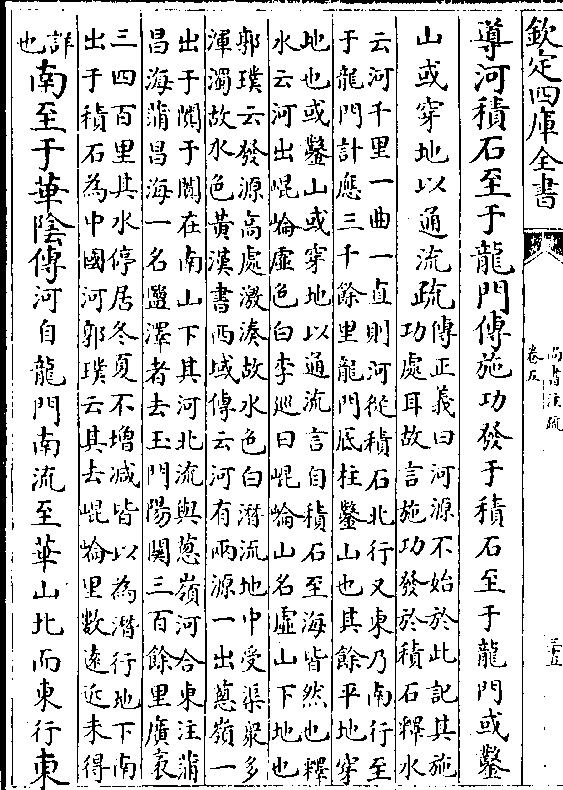 欽定四庫全書
尚書注疏
卷五
三五
導河積石至于龍門傳施功發于積石至于龍門或鑿
山或穿地以通流疏
傳正義曰河源不始於此記其施
功處耳故言施功發於積石釋水
云河千里一曲一直則河從積石北行又東乃南行至
于龍門計應三千餘里龍門底柱鑿山也其餘平地穿
地也或鑿山或穿地以通流言自積石至海皆然也釋
水云河出崐崘虛色白李巡曰崐崘山名虛山下地也
郭璞云發源高處激湊故水色白潛流地中受渠衆多
渾濁故水色黃漢書西域傳云河有兩源一出蔥嶺一
出于闐于闐在南山下其河北流與蔥嶺河合東注蒲
昌海蒲昌海一名鹽澤者去玉門陽關三百餘里廣袤
三四百里其水停居冬夏不增減皆以為潛行地下南
出于積石為中國河郭璞云其去崐崘里數遠近未得
詳
也
南至于華陰傳河自龍門南流至華山北而東行東